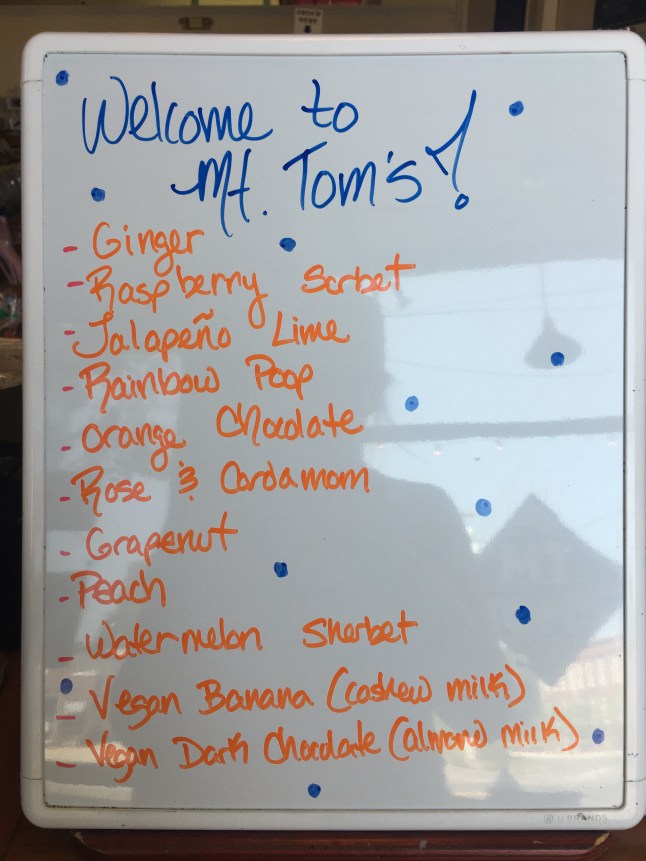 Welcome to
Mt. Tom's!
- Ginger
- Raspberry Sorbet
- Jalapeño Lime
- Rainbow Poop
- Orange Chocolate
- Rose & Cardamom
- Grapenut
- Peach
- Watermelon Sherbet
- Vegan Banana (cashew milk)
- Vegan Dark Chocolate (almond milk)
U BRANDS